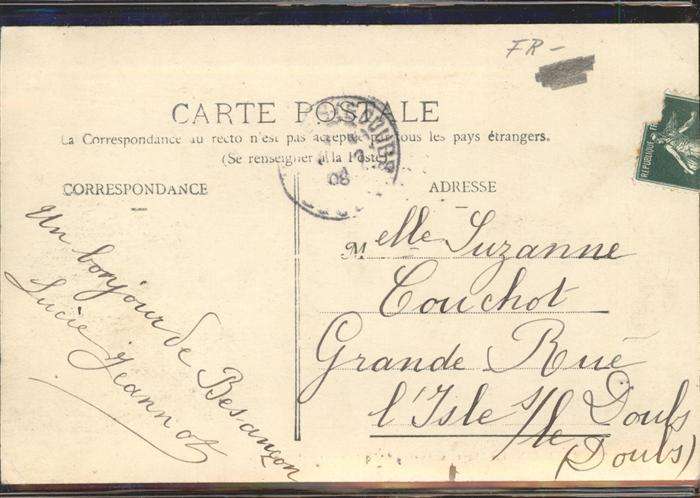 FR-
CARTE POSTALE
La Correspondance au recto n'est pas acceptée par tous les pays étrangers.
(Se renseigner à la Poste)
CORRESPONDANCE
ADRESSE
REPUBLIQUE
08
Un bonjour de Besançon
Lucie Jeannot
Melle Suzanne
Couchot
Grande Rue
l'Isle s/le Doubs
(Doubs)